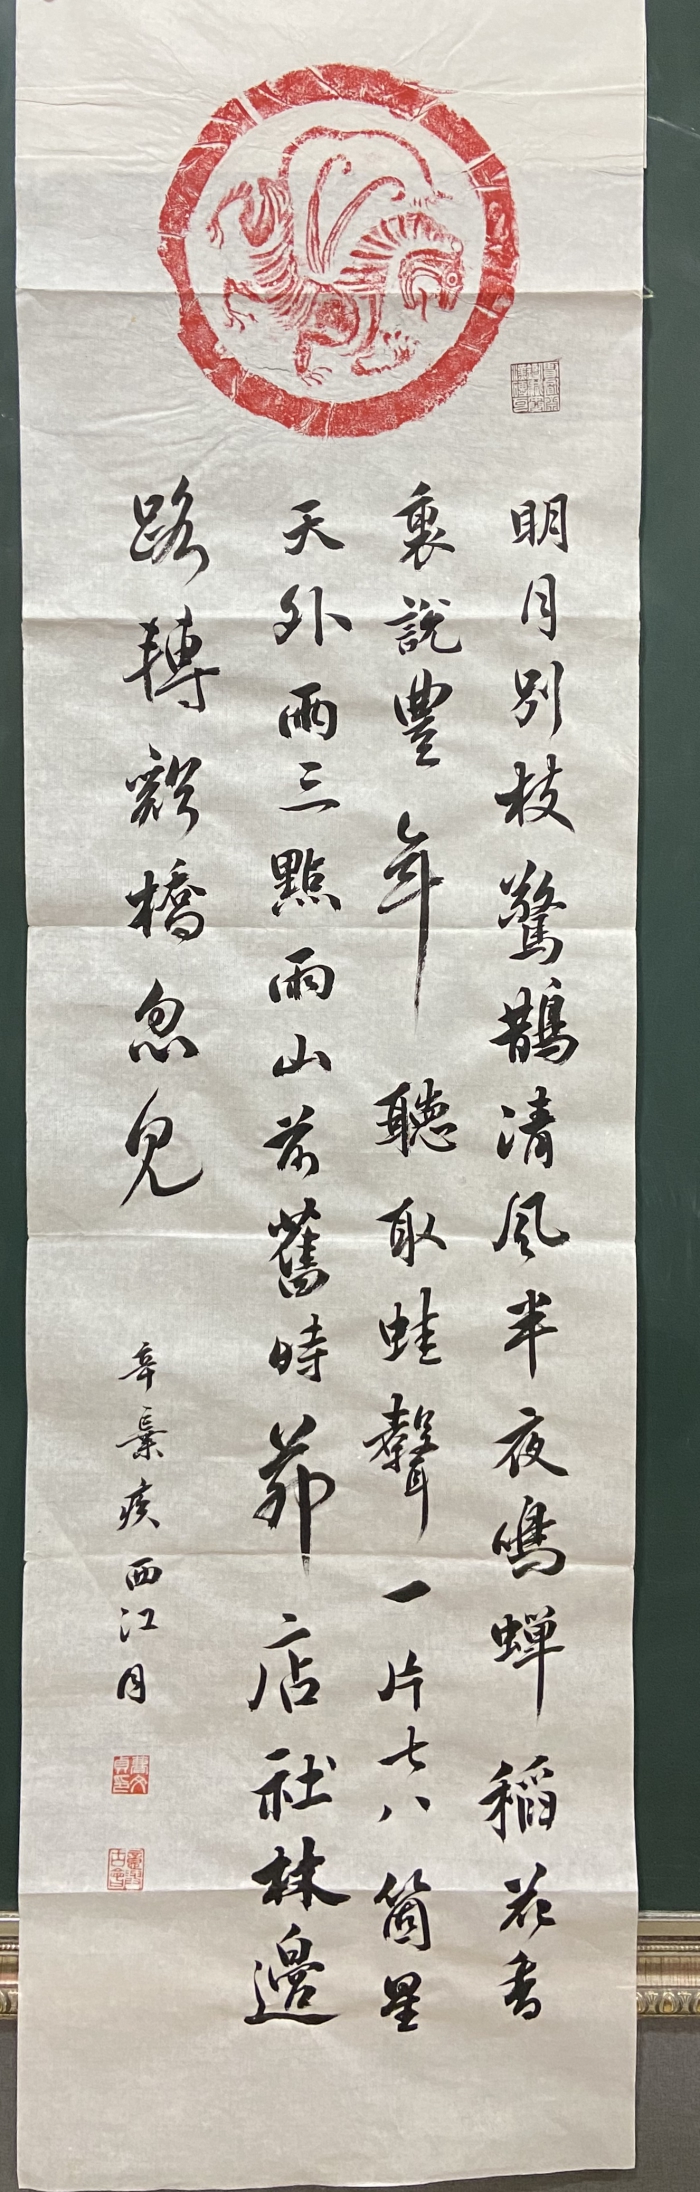 明月別枝驚鵲清風半夜鳴蟬稻花香
裏說豐年聽取蛙聲一片七八箇星
天外兩三點雨山前舊時茆店社林邊
路轉谿橋忽見
辛棄疾西江月